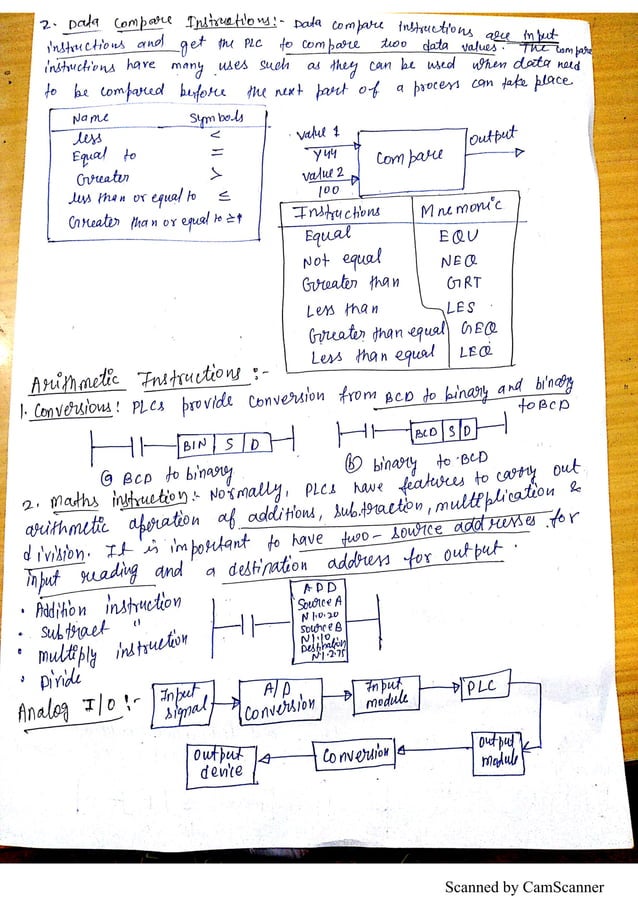 2. Data Compare Instructions:- Data compare instructions are input
instructions and get the PLC to compare two data values. The compare
instructions have many uses such as they can be used when data need
to be compared before the next part of a process can take place
Name Symbols
less <
Equal to =
Greater >
less than or equal to ≤
Greater than or equal to ≥
Value 1
Y44
Value 2
100
Compare
Output
Instructions Mnemonic
Equal EQU
Not equal NEQ
Greater than GRT
Less than LES
Greater than equal GEQ
Less than equal LEQ
Arithmetic Instructions :-
1. Conversions: PLCs provide conversion from BCD to binary and binary
to BCD
BIN S D
BCD S D
(a) BCD to binary
(b) binary to BCD
2. Maths instruction:- Normally, PLCs have features to carry out
arithmetic operation of additions, subtraction, multiplication &
division. It is important to have two-source addresses for
Input reading and a destination address for output.
• Addition instruction
• Subtract "
• multiply instruction
• Divide
ADD
Source A
N1:0.20
Source B
N1:10
Destination
N1.2.75
Analog I/O :-
Input signal
A/D Conversion
Input module
PLC
Output module
Conversion
Output device
Scanned by CamScanner